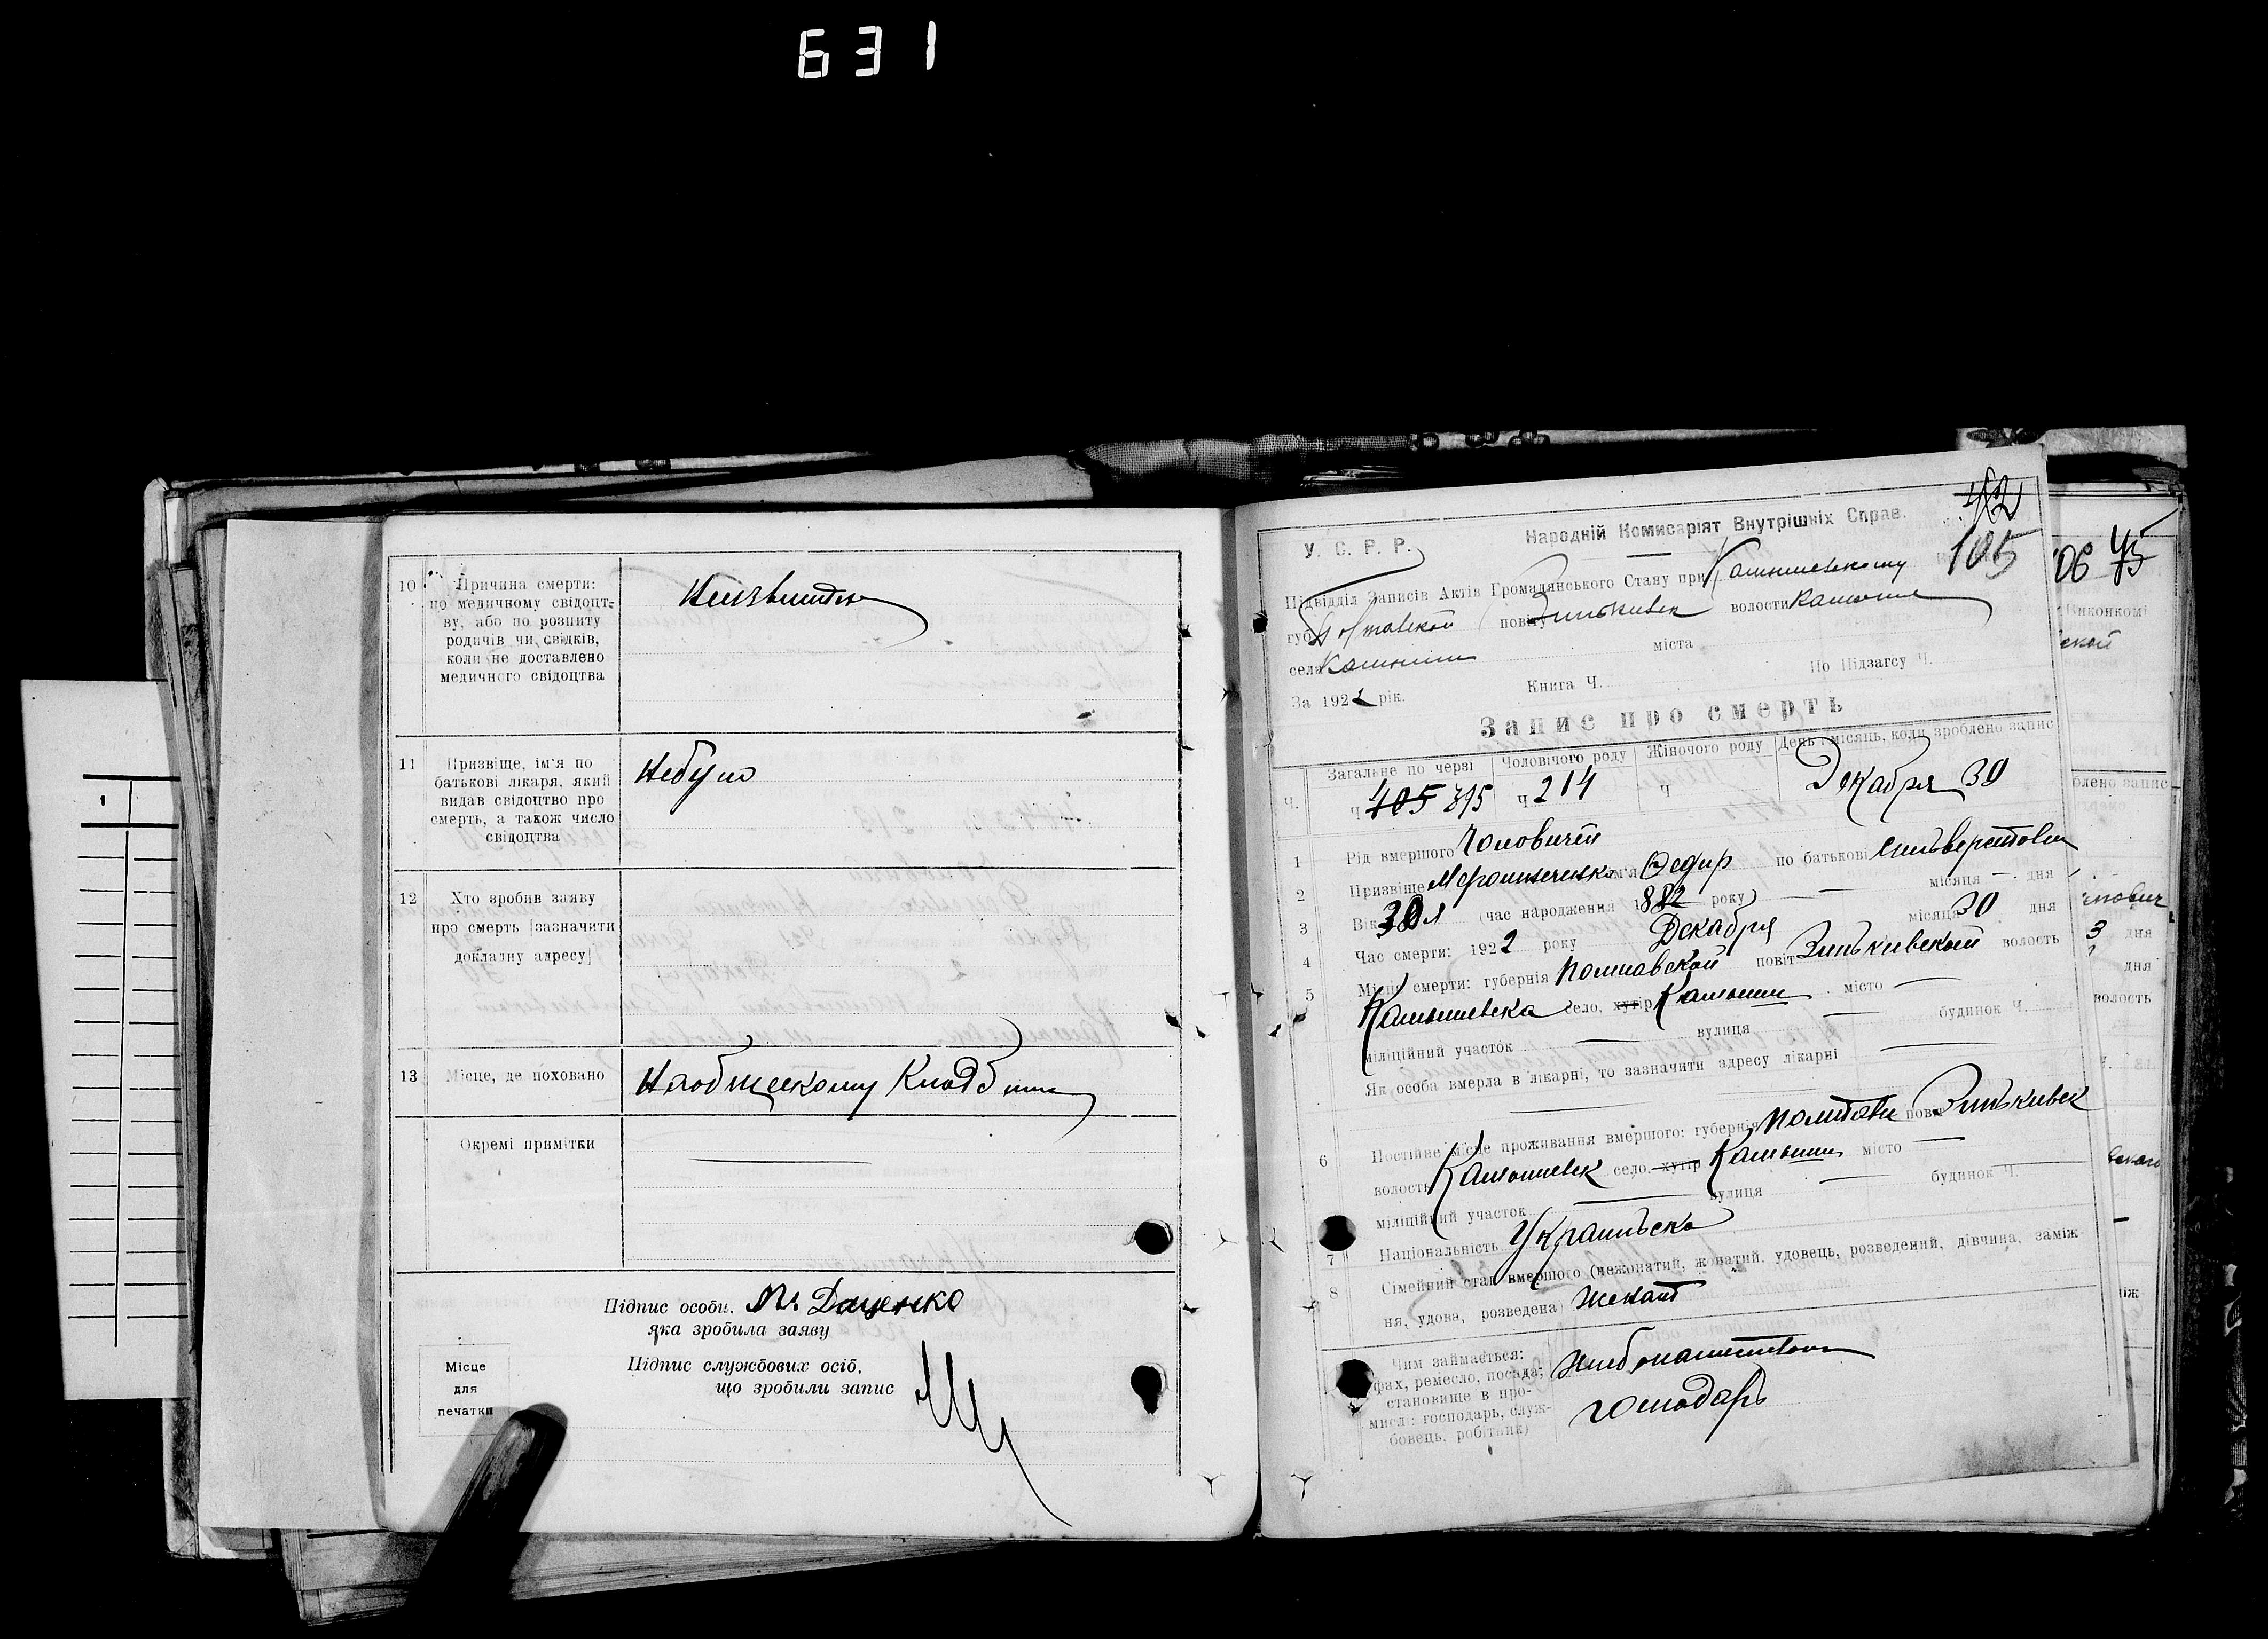 631
10 Причина смерти:
по медичному свідоцт-
ву, або по розпиту
родичів чи свідків,
коли не доставлено
медичного свідоцтва
11 Призвіще, ім'я по
батькові лікаря, який
видав свідоцтво про
смерть, а також число
свідоцтва
Небуло
12 Хто зробив заяву
про смерть [зазначити
докладну адресу]
13 Місце, де поховано
Окремі примітки
Підпис особи, М. Даценко
яка зробила заяву
Підпис службових осіб,
що зробили запис
Місце
для
печатки
1
42
105
У. С. Р. Р. Народній Комисаріят Внутрішніх Справ.
Підвідділ Записів Актів Громадянського Стану при Камишевскому
губ. Полтавской повіту Зиньківск волости Камыши
села Камыши міста
За 1922 рік. Книга Ч. По Підзагсу Ч.
Запис про смерть
Ч. Загальне по черзі Чоловічого роду Жіночого роду День і місяць, коли зроблено запис
Ч 405 395 Ч 214 Ч Декабря 30
1 Рід вмершого Чоловичей
2 Призвіще ім'я Федир по батькові
3 Вік (час народження 1882 року) місяця дня
4 Час смерти: 1922 року Декабря місяця 30 дня
5 Місце смерти: губернія Полтавской повіт Зинькивской волость
Камышевска село, хутір Камыши місто
міліційний участок вулиця будинок Ч.
Як особа вмерла в лікарні, то зазначити адресу лікарні
6 Постійне місце проживання вмершого: губернія Полтави повіт Зинькивск
волость Камышевск село, хутір Камыши місто
міліційний участок вулиця будинок Ч.
7 Національність Украинска
8 Сімейний стан вмершого (нежонатий, жонатий, удовець, розведений, дівчина, заміж-
ня, удова, розведена) женат
Чим займається:
фах, ремесло, посада;
становище в про-
мислі: господарь, служ-
бовець, робітник)
господарь
06 45
Виконкомі
ской
блено запис
3 дня
дня
волость
іж